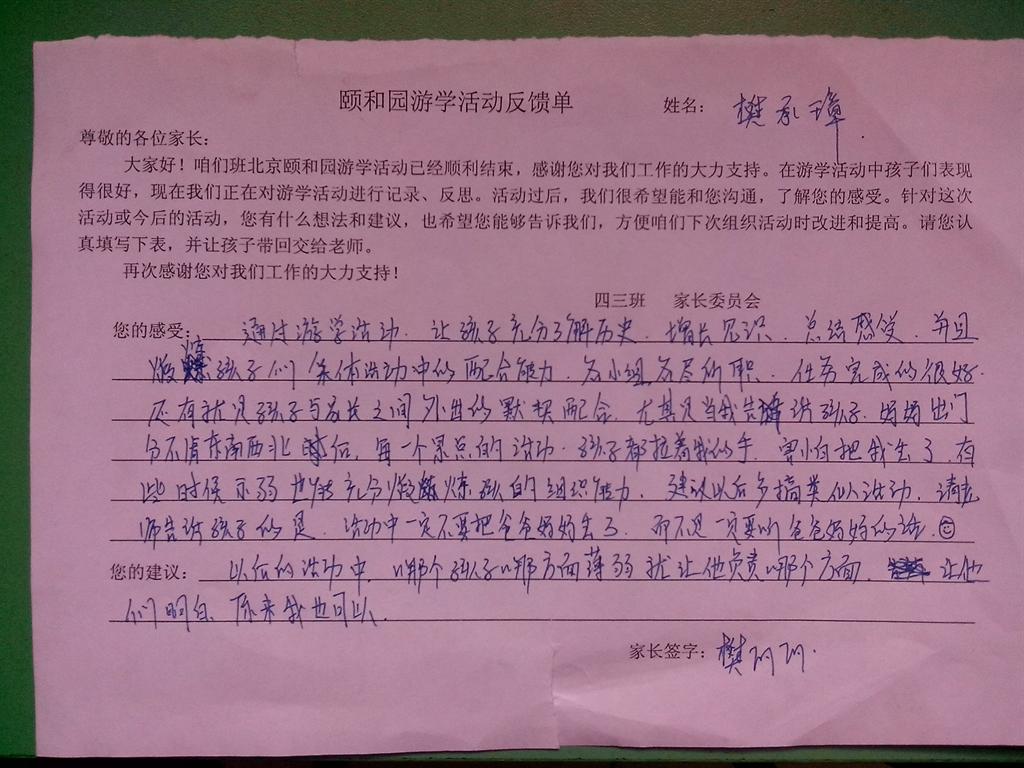 颐和园游学活动反馈单 姓名：樊承璋
尊敬的各位家长：
大家好！咱们班北京颐和园游学活动已经顺利结束，感谢您对我们工作的大力支持。在游学活动中孩子们表现
得很好，现在我们正在对游学活动进行记录、反思。活动过后，我们很希望能和您沟通，了解您的感受。针对这次
活动或今后的活动，您有什么想法和建议，也希望您能够告诉我们，方便咱们下次组织活动时改进和提高。请您认
真填写下表，并让孩子带回交给老师。
再次感谢您对我们工作的大力支持！
四三班 家长委员会
您的感受：通过游学活动．让孩子充分了解历史．增长见识．总结感受．并且
锻炼孩子们集体活动中的配合能力．各小组各尽所职．任务完成的很好．
还有就是孩子与家长之间外出的默契配合．尤其是当我告诉孩子．妈妈出门
分不清东南西北后，每一个景点的活动．孩子都拉着我的手．害怕把我丢了．有
些时候示弱也能充分锻炼孩子的组织能力．建议以后多搞类似活动．请老
师告诉孩子的是．活动中一定不要把爸爸妈妈丢了．而不是一定要听爸爸妈妈的话．
您的建议：以后的活动中．哪个孩子哪方面薄弱就让他负责哪个方面．让他
们明白．原来我也可以．
家长签字：樊